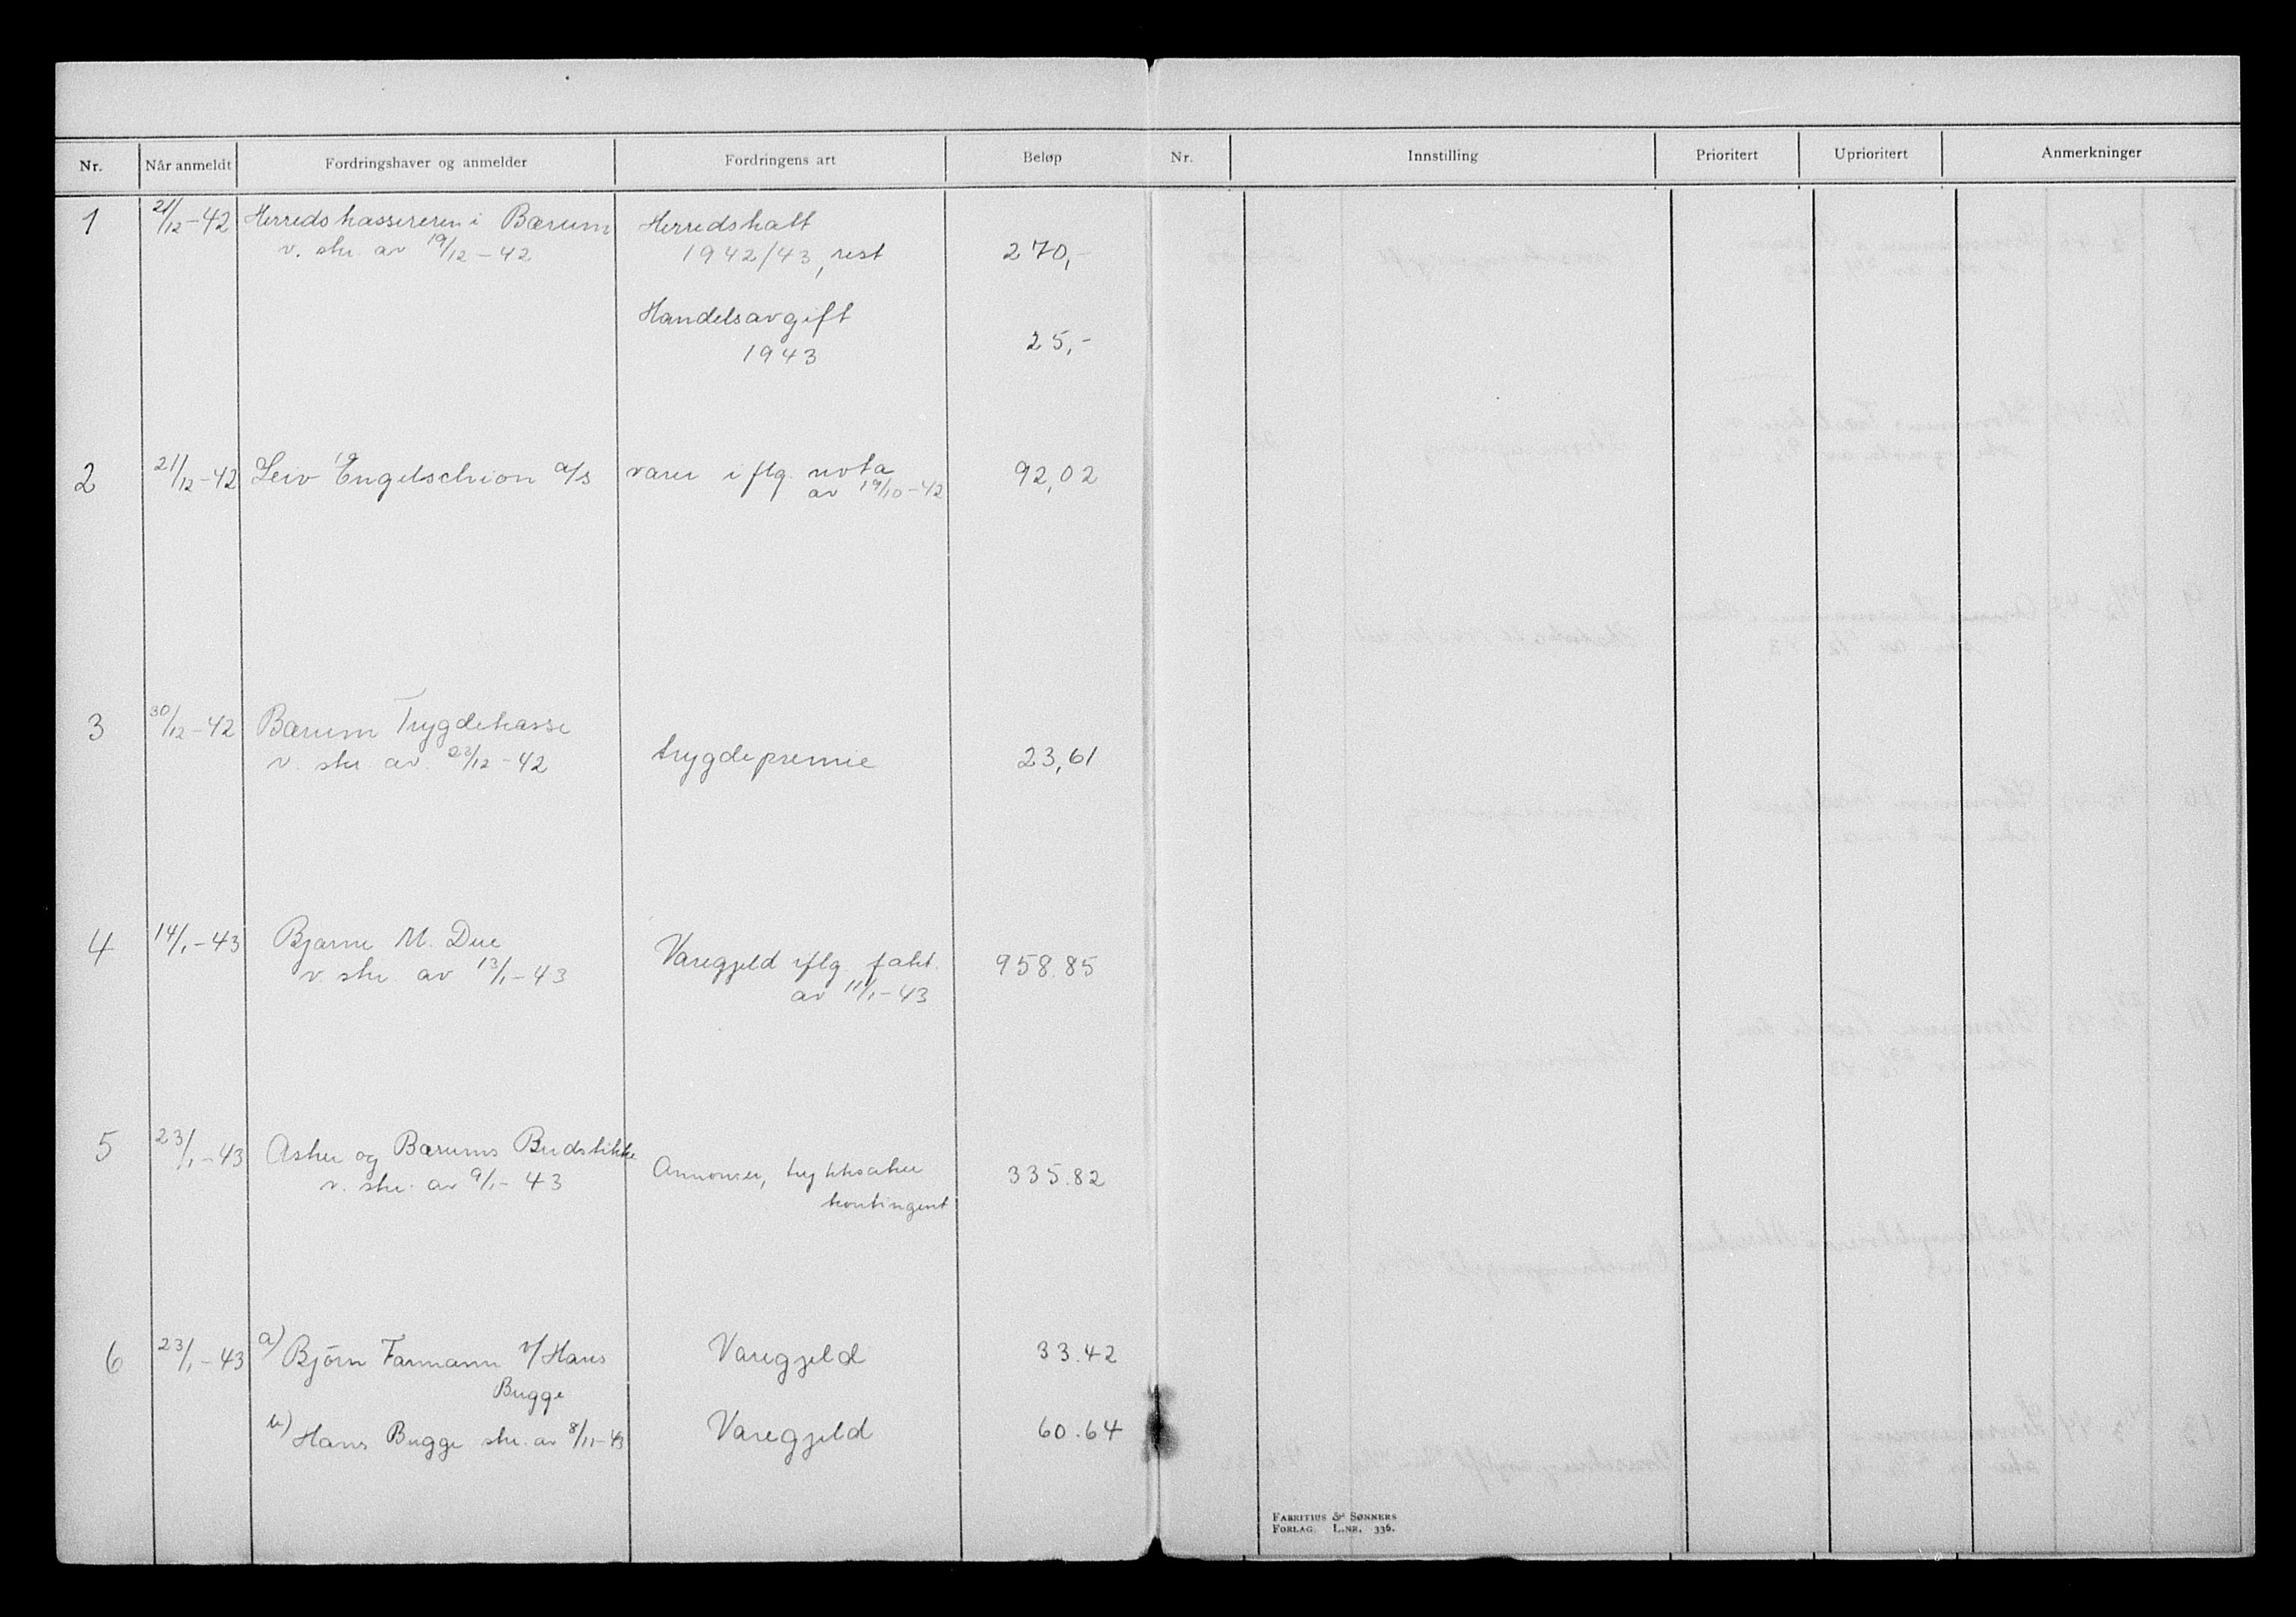 Nr. Når anmeldt Fordringshaver og anmelder Fordringens art Beløp Nr. Innstilling Prioritert Uprioritert Anmerkninger
1 21/12-42 Herredskassereren i Bærum Herredskatt
v. skr. av 19/12-42 1942/43, rest 270,-
Handelsavgift
1943 25,-
2 21/12-42 Leiv Engelschion a/s varer iflg. nota 92,02
av 19/10-42
3 30/12-42 Bærum Trygdekasse
v. skr. av. 23/12-42 trygdepremie 23,61
4 14/1-43 Bjarne M. Due Varegjeld iflg. fakt. 958.85
v. skr. av 13/1-43 av 11/1-43
5 23/1-43 Asker og Bærums Budstikke Annonser, trykksaker 335.82
v. skr. av 9/1-43 kontingent
6 23/1-43 a) Björn Farmann v/Hans Varegjeld 33.42
Bugge
b) Hans Bugge skr. av 8/11-43 Varegjeld 60.64
FABRITIUS & SØNNERS
FORLAG. L.NR. 336.